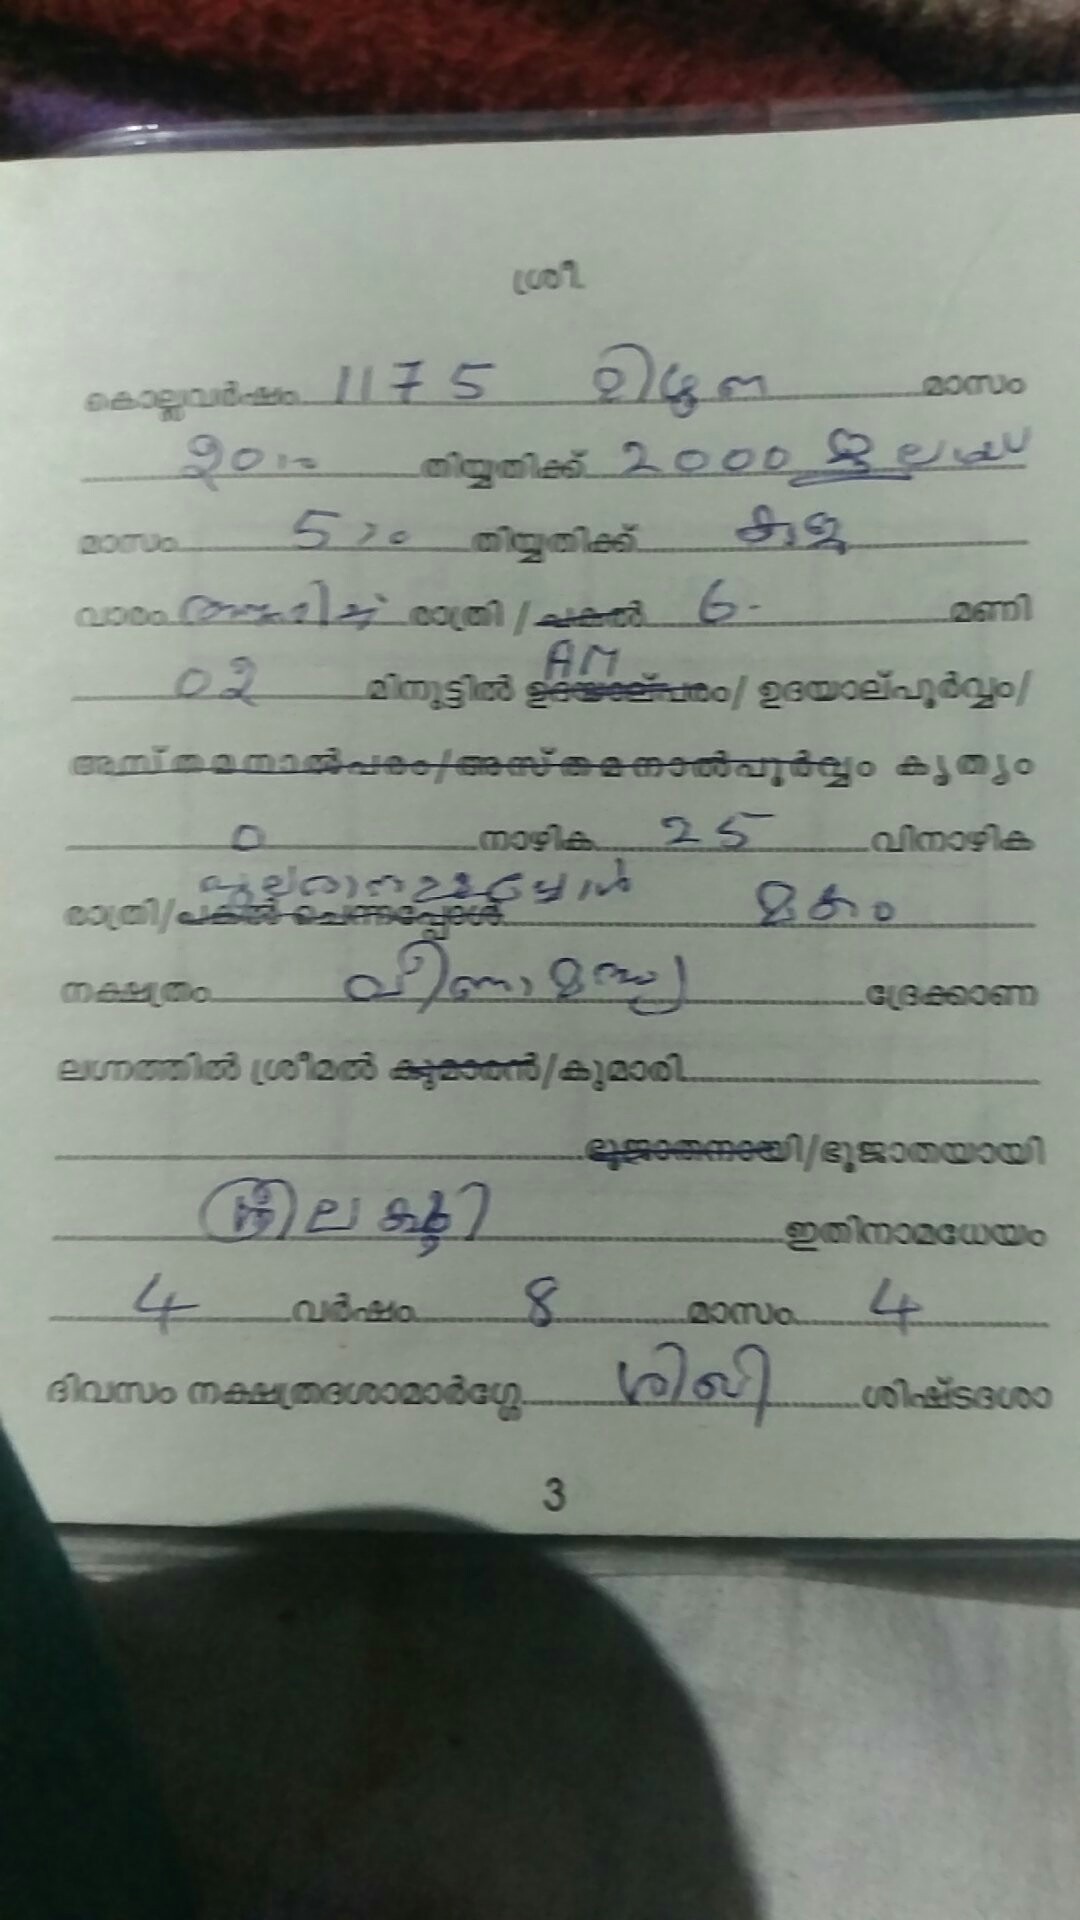 ശ്രീ
കൊല്ലവർഷം 1175 മിഥുന മാസം
തിയ്യതിക്ക് 2000 ജൂലായ്
മാസം 5ാം തിയ്യതിക്ക്
വാരം രാത്രി / പകൽ 6 മണി
AM
02 മിനുട്ടിൽ ഉദയാല്പരം/ ഉദയാല്പൂർവ്വം/
അസ്തമനാൽപരം/അസ്തമനാൽപൂർവ്വം കൃത്യം
0 നാഴിക 25 വിനാഴിക
രാത്രി/പകൽ ചെന്നപ്പോൾ മകം
നക്ഷത്രം ദ്രേക്കാണ
ലഗ്നത്തിൽ ശ്രീമൽ കുമാരൻ/കുമാരി
ഭൂജാതനായി/ഭൂജാതയായി
ഇതിനാമധേയം
4 വർഷം 8 മാസം 4
ദിവസം നക്ഷത്രദശാമാർഗ്ഗേ ശിഖി ശിഷ്ടദശാ
3